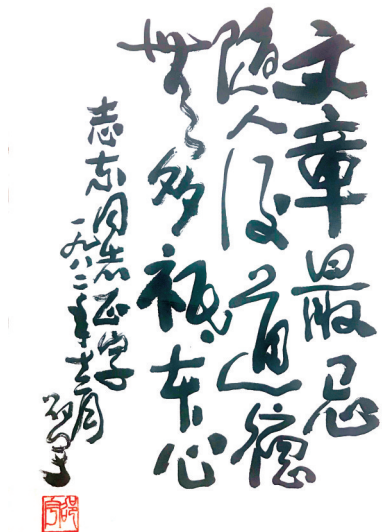 文章最忌
随人後道德
無多祇本心
志东同志正字
一九八二年